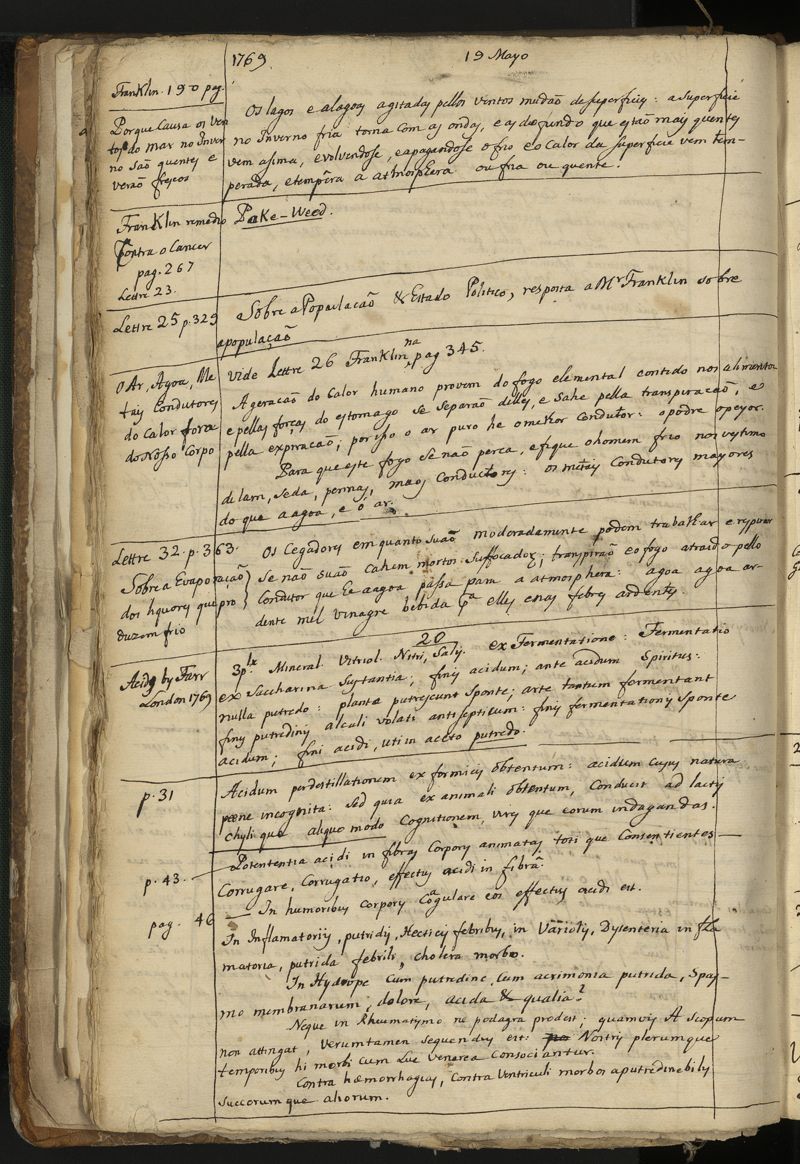 1769. 19 Mayo
Franklin. 190 pag.
Porque Causa os Ven
tos do mar no Inver
no são quentes e
verão frescos
Os lagos e alagoas agitadas pellos ventos mudão de superficies: a superficie
no Inverno fria torna com as ondas, e as do fundo que estão mais quentes
vem asima, evolvendose, eapagandose o frio e o Calor da superficie vem tem-
perada, etempera a atmosphera ou fria ou quente.
Franklin remedio
Contra o Cancer
pag. 267
Lettre 23.
Poke-Weed.
Lettre 25 p. 329
Sobre a Populacaõ & Estado Politico, resposta a Mr Franklin sobre
apopulaçaõ
O Ar, Agoa, Me
taes Condutores
do Calor fora
do Nosso Corpo
vide Lettre 26 Franklin, na pag 345.
A geracaõ do Calor humano provem do fogo elemental contido nos alimentos
e pellas forças do estomago se separaõ delles, e sahe pella transpiracaõ, e
pella expiracaõ; por isso o ar puro he o melhor Condutor: o podre o peyor.
Para que este fogo se não perca, e fique o homem frio nos vestimos
de lam, seda, pennas, maos Conductores: os metaes Condutores mayores
do que a agoa, e o ar.
Lettre 32. p. 363.
Sobre a Evaporaçaõ
dos liquores que pro
duzem frio
Os Cegadores em quanto suaõ moderadamente podem trabalhar e respirar
se não suaõ cahem mortos suffocados; transpiraõ e o fogo atraido pello
Condutor que he a agoa passa para a atmosphera: agoa agoa ar-
dente mel vinagre bebida pa elles e nas febres ardentes.
20
Acids by Farr
London 1769
3plx Mineral. Vitriol. Nitri, Salis. ex Fermentatione: Fermentatio
ex Saccharina Sustantia; finis acidum; ante acidum Spiritus:
nulla putredo: plantæ putrescunt Sponte; arte tantum fermentant
finis putredinis alculi volati antisepticum: finis fermentationis sponte
acidum; fini acidi, uti in aceto putredo.
p. 31
Acidum perdestillationem ex formicis obtentum: acidum cujus natura
pæne incognita: sed quia ex animali obtentum, Conducit ad lactis
chylique aliquo modo Cognitionem, vires que eorum indagandas.
p. 43.
Potententia acidi in fibras Corporis animatas toti que Consentientes
Corrugare, Corrugatio, effectus acidi in fibrã.
pag. 46
In humoribus corporis Coagulare eos effectus acidi est.
In Inflamatoriis, putridis, Hecticis febribus, in Variolis, Dysenteria infla
matoria, putrida febrili, cholera morbo.
In Hydrope Cum putredine, Cum acrimonia putrida, Spas-
mo membranarum, dolore, acida & qualia?
Neque in Rheumatismo ne podagra prodest; quamvis A scopum
non attingat, Verumtamen sequendus est: Nostris plerumque
temporibus hi morbi cum Lue Venerea Consociantur.
Contra hæmorrhagias, Contra Ventriculi morbos a putredine bilis
succorumque aliorum.